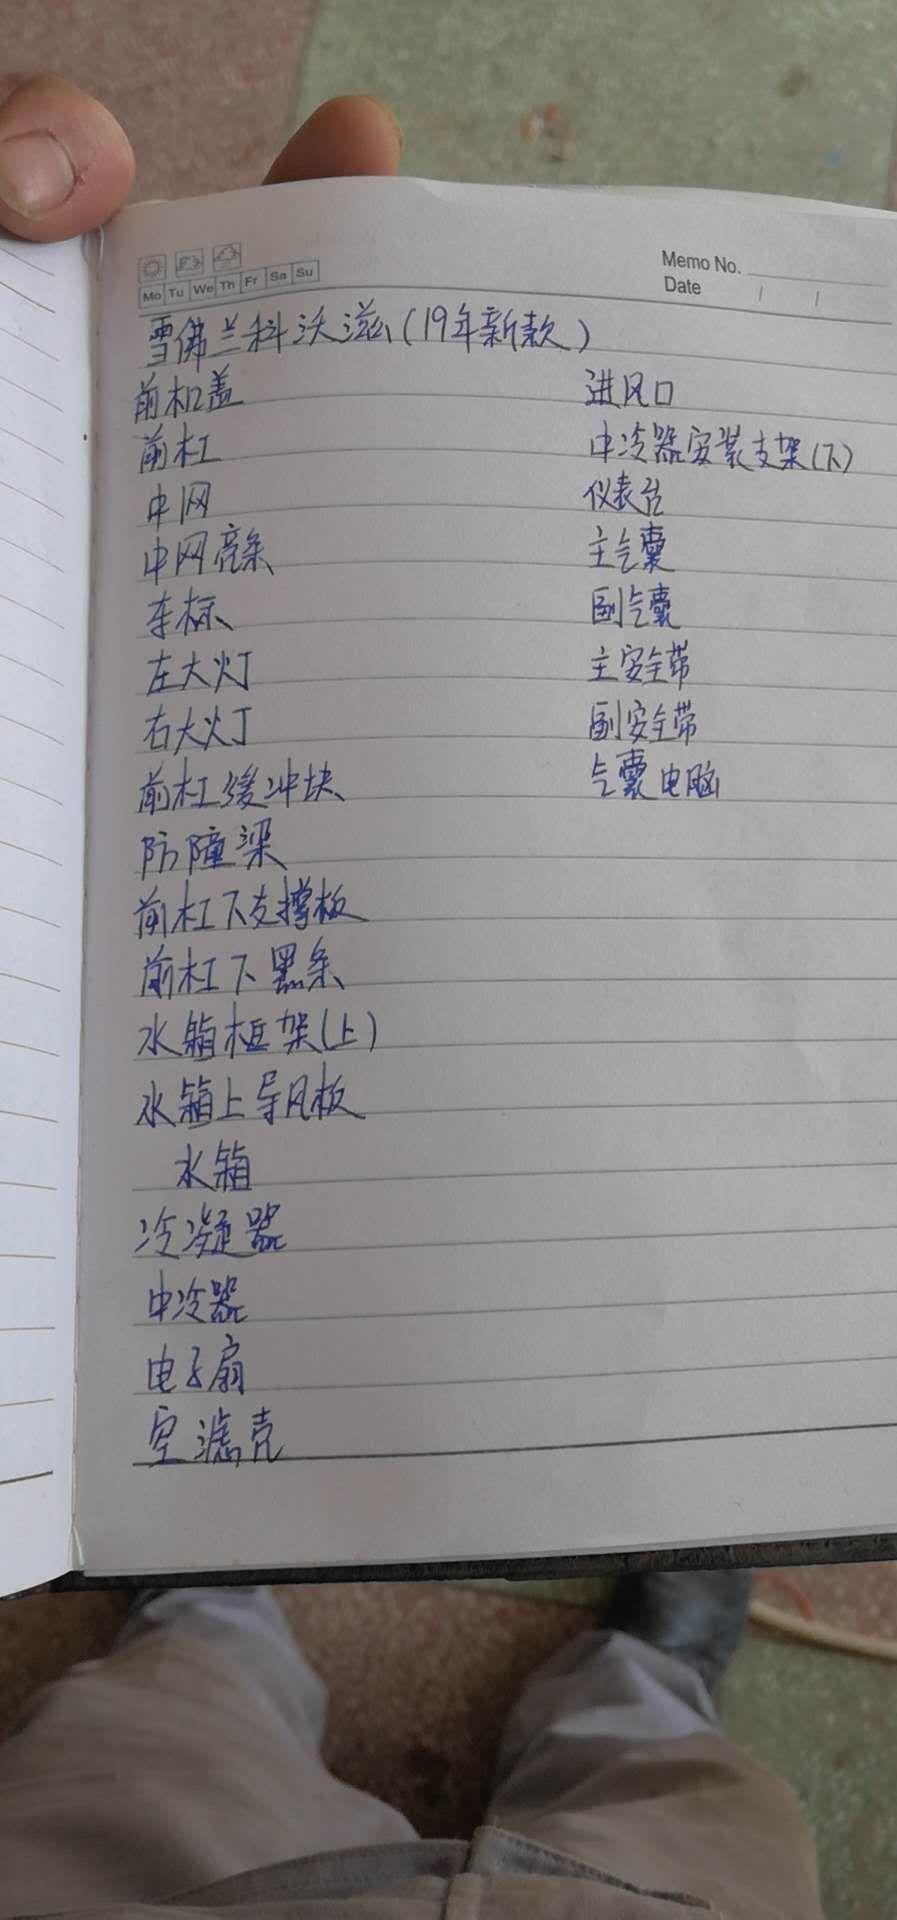 Mo Tu We Th Fr Sa Su
Memo No.
Date / /
雪佛兰科沃滋(19年新款)
前机盖
前杠
中网
中网亮条
车标
左大灯
右大灯
前杠缓冲块
防撞梁
前杠下支撑板
前杠下黑条
水箱框架(上)
水箱上导风板
水箱
冷凝器
中冷器
电子扇
空滤壳
进风口
中冷器安装支架(下)
仪表台
主气囊
副气囊
主安全带
副安全带
气囊电脑